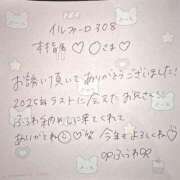 イルフィーロ308
本指名♡〇さま♡
お誘い頂いてありがとうございました!
2025年ラストに会えたお兄さん
ふうわ納めしに来てくれて
ありがとね♡今年もよろしくね♡
ふうわ